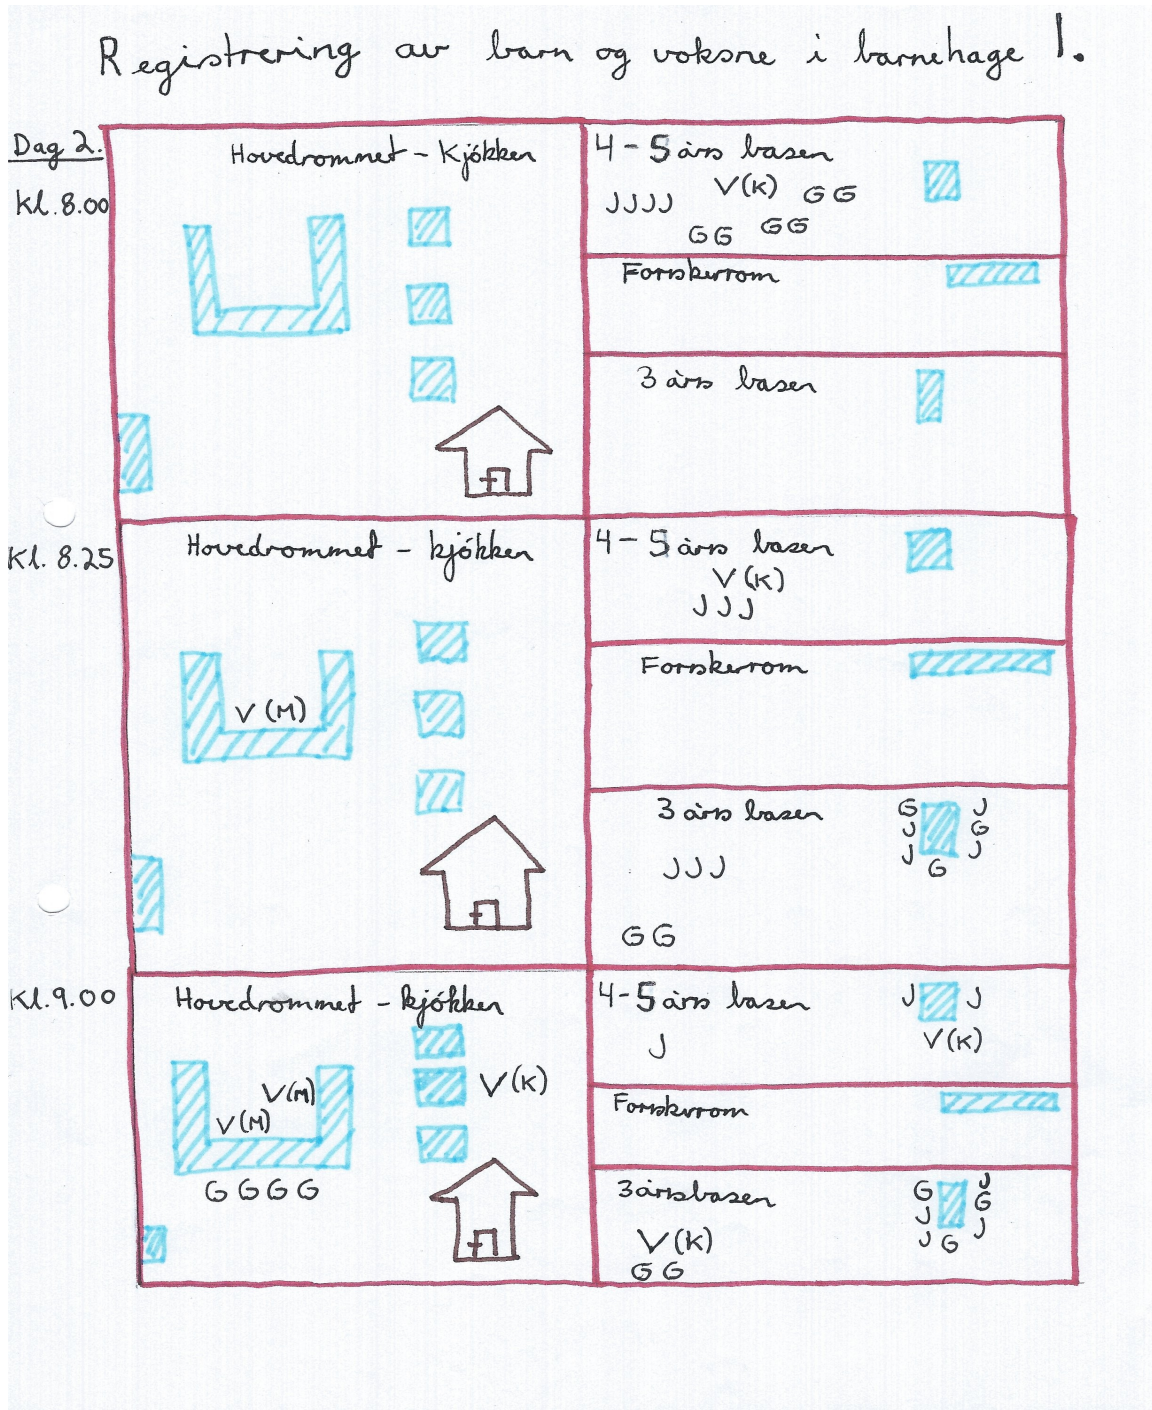 Registrering av barn og voksne i barnehage 1.
Dag 2.
Kl. 8.00
Hovedrommet - Kjøkken
4-5 års basen
V(K) G G
J J J J
G G G G
Forskerrom
3 års basen
Kl. 8.25
Hovedrommet - kjøkken
V (M)
4-5 års basen
V (K)
J J J
Forskerrom
3 års basen
G J
J G
J J
G
J J J
G G
Kl. 9.00
Hovedrommet - kjøkken
V(K)
V(M)
V(M)
G G G G
4-5 års basen
J J
J
V(K)
Forskerrom
3 årsbasen
G J
G
J J
J G
V(K)
G G